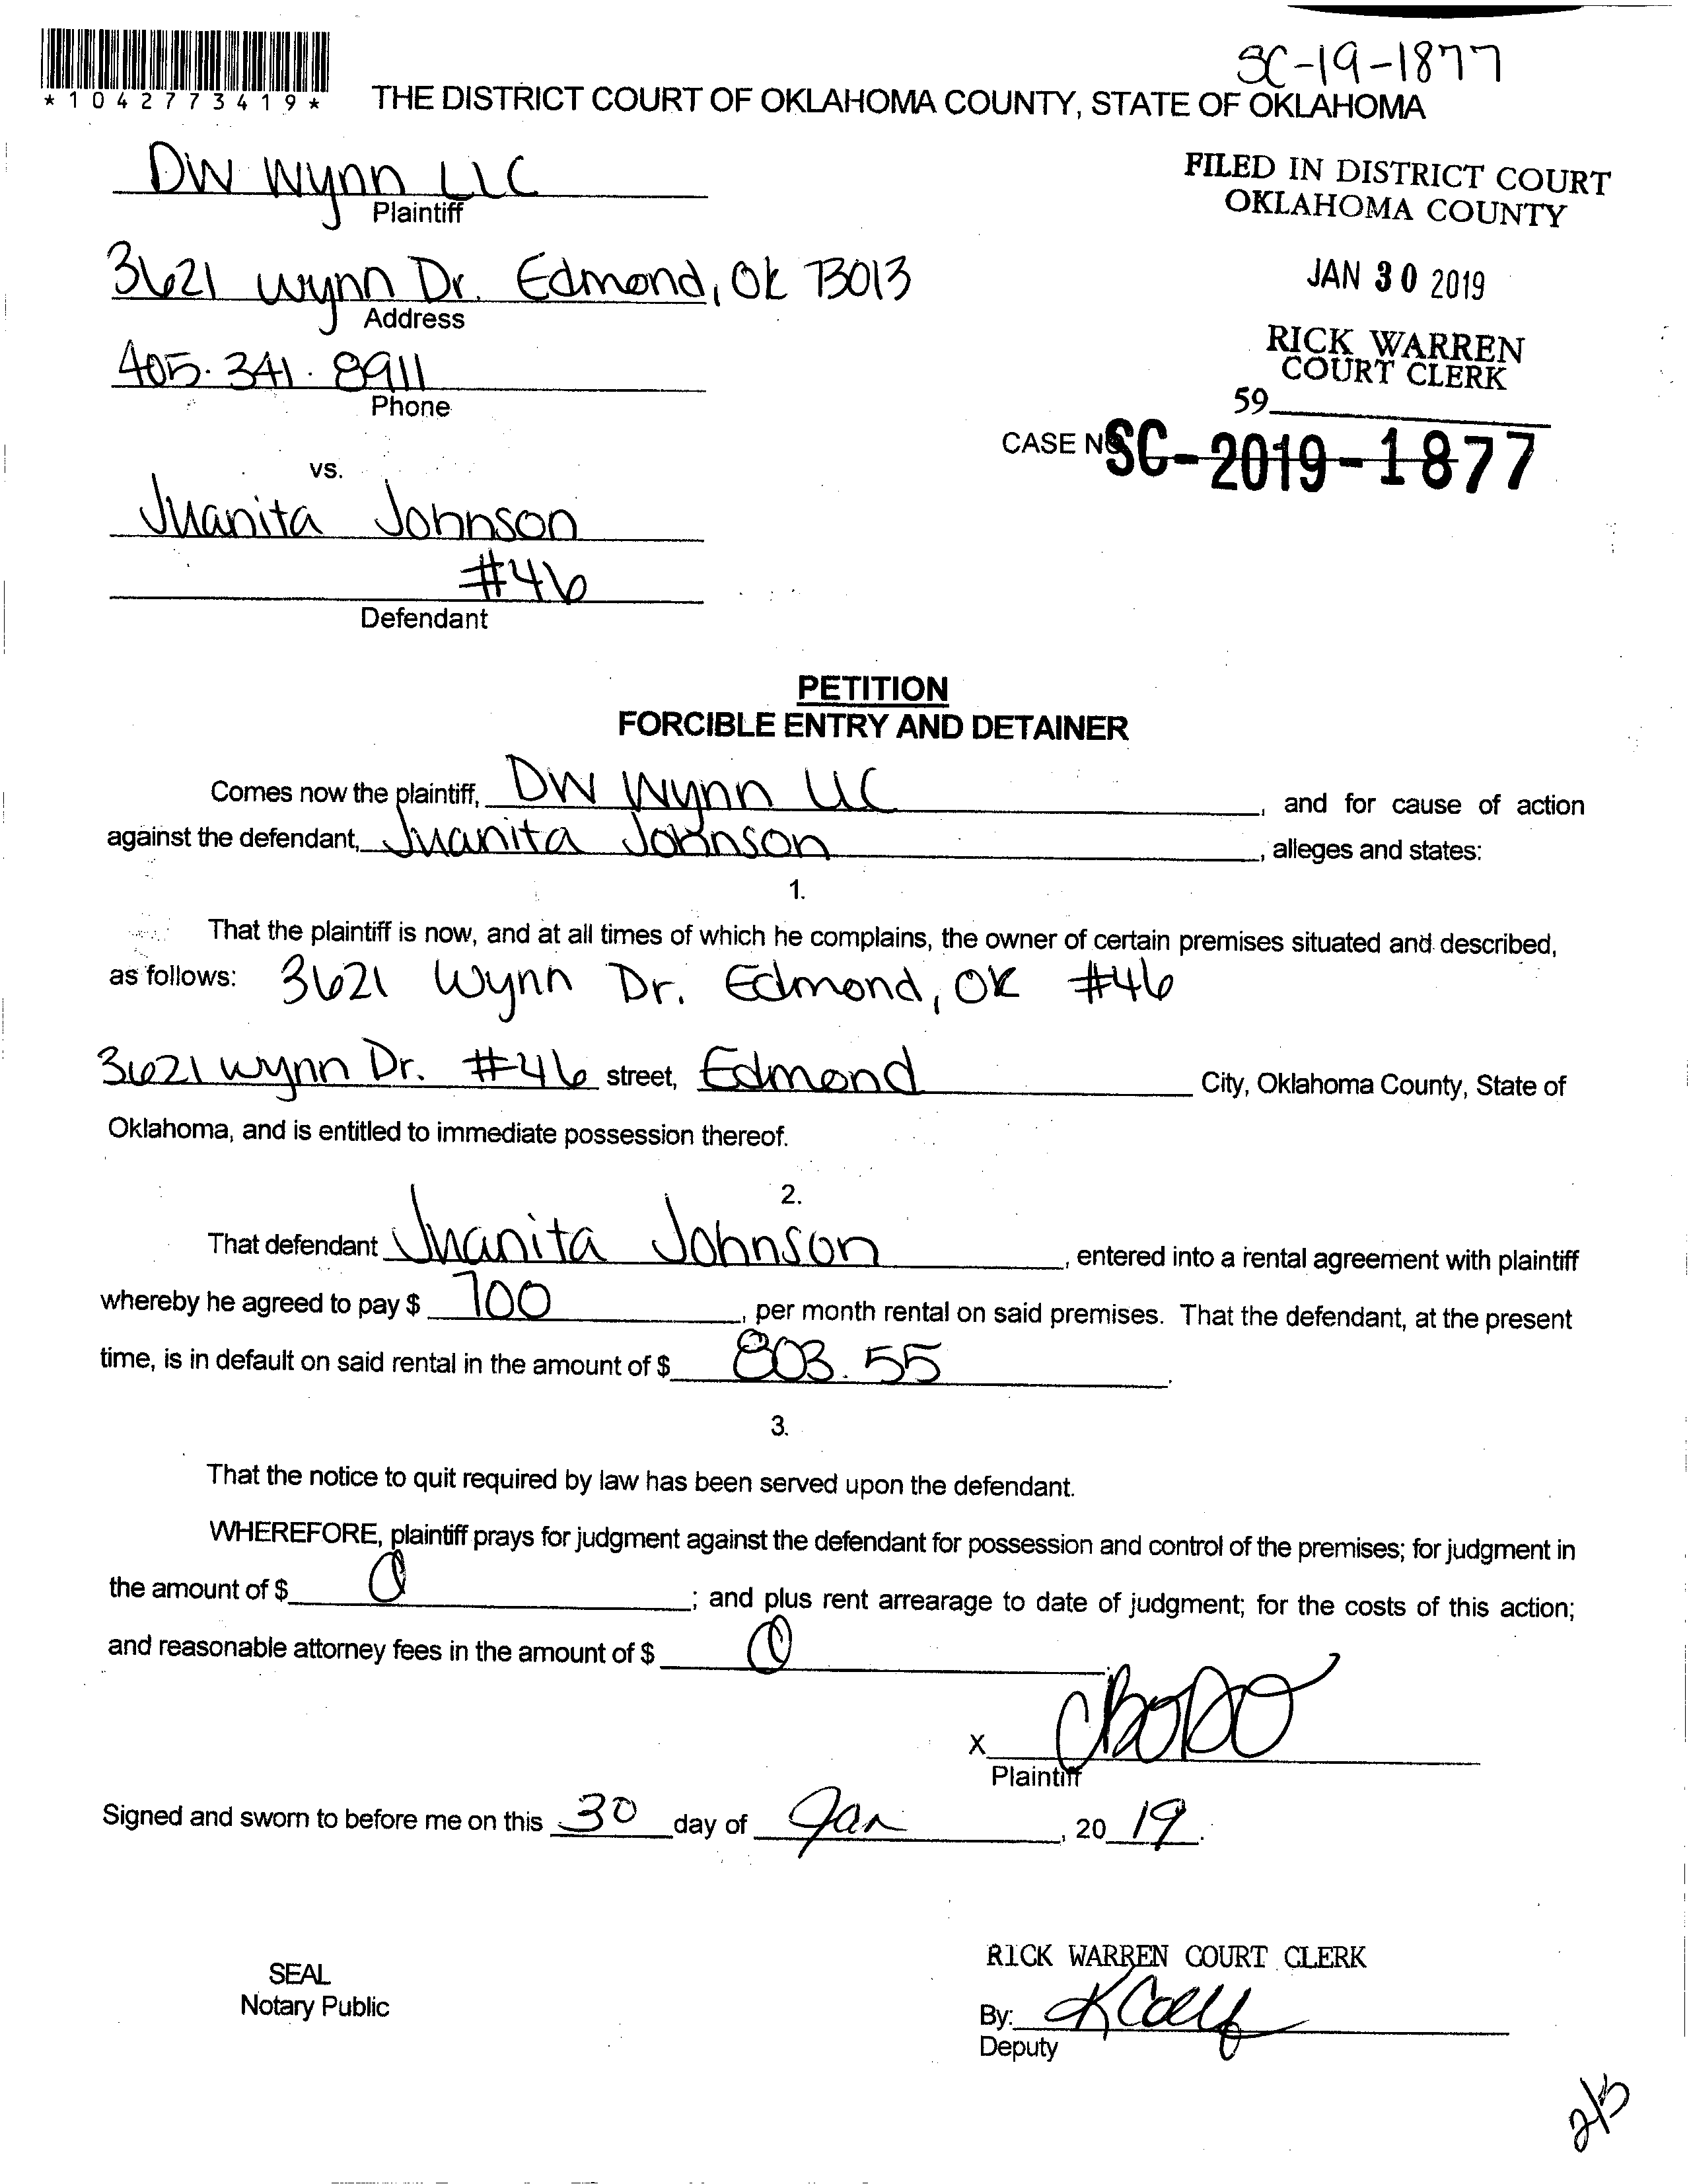 SC-19-1877
*1042773419*
THE DISTRICT COURT OF OKLAHOMA COUNTY, STATE OF OKLAHOMA
DW Wynn LLC
Plaintiff
FILED IN DISTRICT COURT
OKLAHOMA COUNTY
3621 Wynn Dr. Edmond, OK 73013
Address
JAN 30 2019
405.341.8911
Phone
RICK WARREN
COURT CLERK
59
CASE NO SC-2019-1877
vs.
Juanita Johnson
#46
Defendant
PETITION
FORCIBLE ENTRY AND DETAINER
Comes now the plaintiff, DW Wynn LLC, and for cause of action
against the defendant, Juanita Johnson, alleges and states:
1.
That the plaintiff is now, and at all times of which he complains, the owner of certain premises situated and described,
as follows: 3621 Wynn Dr. Edmond, OK #46
3621 Wynn Dr. #46 street, Edmond City, Oklahoma County, State of
Oklahoma, and is entitled to immediate possession thereof.
2.
That defendant Juanita Johnson, entered into a rental agreement with plaintiff
whereby he agreed to pay $ 700, per month rental on said premises. That the defendant, at the present
time, is in default on said rental in the amount of $ 803.55.
3.
That the notice to quit required by law has been served upon the defendant.
WHEREFORE, plaintiff prays for judgment against the defendant for possession and control of the premises; for judgment in
the amount of $ 0; and plus rent arrearage to date of judgment; for the costs of this action;
and reasonable attorney fees in the amount of $ 0.
X
Plaintiff
Signed and sworn to before me on this 30 day of Jan, 20 19.
SEAL
Notary Public
RICK WARREN COURT CLERK
By:
Deputy
2/5